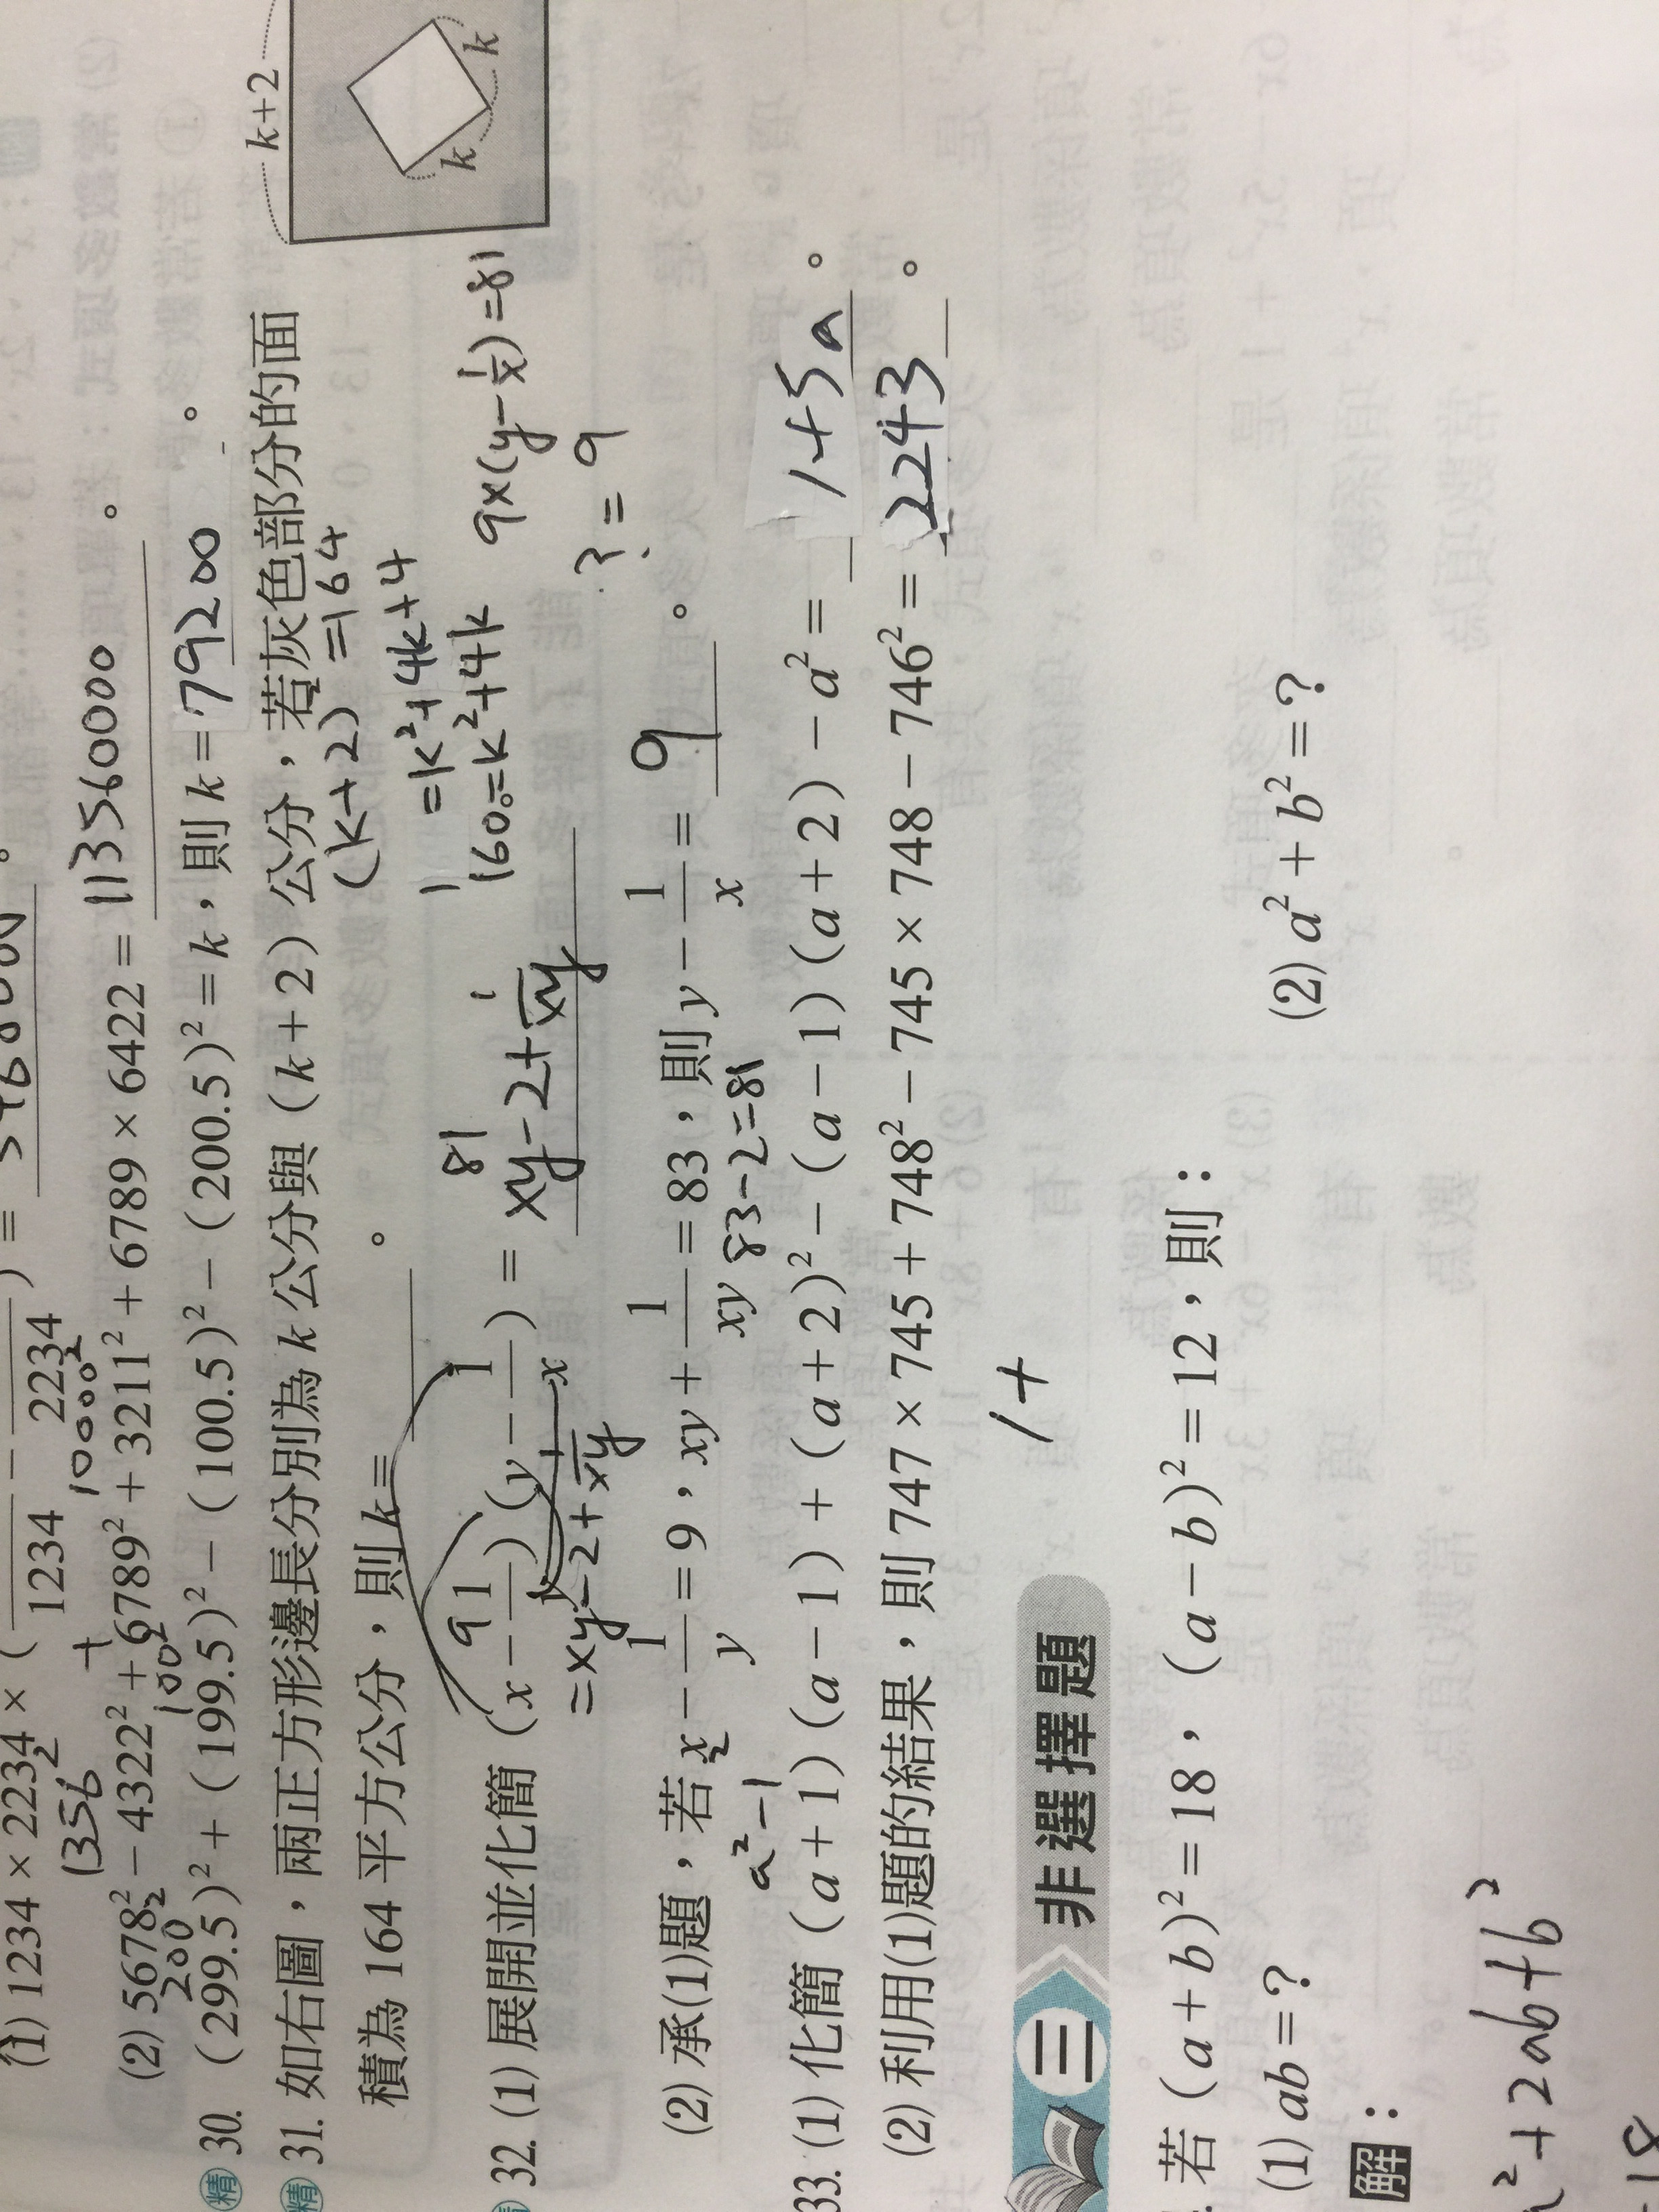 (1) 1234 × 2234 × ( 1234 − 2234 ) =
1356
10000²
(2) 5678² − 4322² + 6789² + 3211² + 6789 × 6422 = 113560000 。
200² 100²
精 30. (299.5)² + (199.5)² − (100.5)² − (200.5)² = k,則 k = 79200 。
精 31. 如右圖,兩正方形邊長分別為 k 公分與 (k+2) 公分,若灰色部分的面
積為 164 平方公分,則 k = 。
(k+2)² = 164
= k² + 4k + 4
160 = k² + 4k
k+2
k
k
32. (1) 展開並化簡 (x − 1/y)(y − 1/x) = xy − 2 + 1/xy
9
81
= xy − 2 + 1/xy
9×(y − 1/x) = 81
? = 9
(2) 承(1)題,若 x − 1/y = 9,xy + 1/xy = 83,則 y − 1/x = 9 。
83 − 2 = 81
a² − 1
33. (1) 化簡 (a+1)(a−1) + (a+2)² − (a−1)(a+2) − a² = 1+5a 。
(2) 利用(1)題的結果,則 747 × 745 + 748² − 745 × 748 − 746² = 2243 。
1+
三 非選擇題
. 若 (a+b)² = 18,(a−b)² = 12,則:
(1) ab = ? (2) a² + b² = ?
解:
a² + 2ab + b²
18